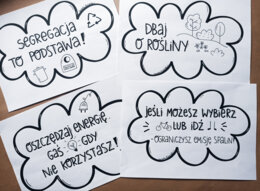 SEGREGACJA
TO PODSTAWA!
DBAJ
O ROŚLINY
OSZCZĘDZAJ ENERGIĘ
GAŚ GDY
NIE KORZYSTASZ!
JEŚLI MOŻESZ WYBIERZ
LUB IDŹ
OGRANICZYSZ EMISJĘ SPALIN!